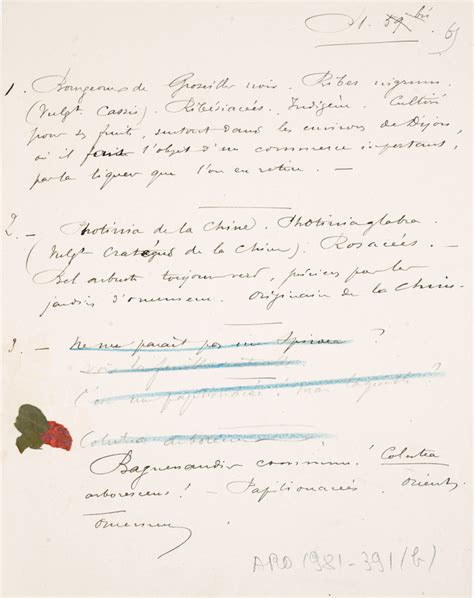 Pl. 59 bis 65
1. Bourgeons de Groseiller noir. Ribes nigrum
(Vulgt Cassis). Ribésiacées. Indigène. Cultivé
pour ses fruits, surtout dans les environs de Dijon,
où il fait l'objet d'un commerce important,
par la liqueur que l'on en retire. —
2. — Photinia de la Chine. Photinia glabra.
(Vulgt Cratégus de la Chine). Rosacées. —
Bel arbuste toujours vert, précieux par les
jardins d'ornement. Originaire de la Chine.
3. — Ne me paraît pas un Spiraea ?
voir la feuille
l'on un papilionacée ?
Colutea arborescens
Baguenaudier commun ! Colutea
arborescens ! — Papilionacées. Orient.
Ornement
ARO 1981-391 (b)